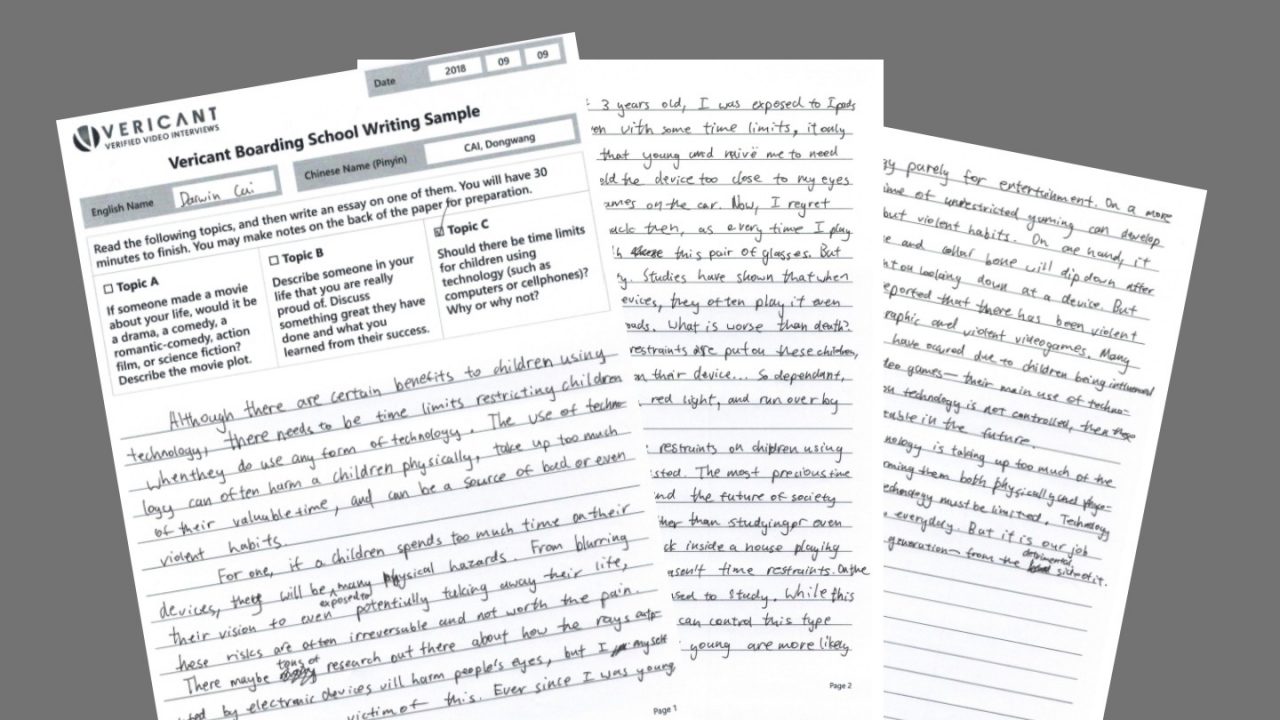 Date 2018 09 09
VERICANT
VERIFIED VIDEO INTERVIEWS
Vericant Boarding School Writing Sample
English Name Darwin Cai
Chinese Name (Pinyin) CAI, Dongwang
Read the following topics, and then write an essay on one of them. You will have 30
minutes to finish. You may make notes on the back of the paper for preparation.
Topic A
If someone made a movie
about your life, would it be
a drama, a comedy, a
romantic-comedy, action
film, or science fiction?
Describe the movie plot.
Topic B
Describe someone in your
life that you are really
proud of. Discuss
something great they have
done and what you
learned from their success.
Topic C
Should there be time limits
for children using
technology (such as
computers or cellphones)?
Why or why not?
Although there are certain benefits to children using
technology, there needs to be time limits restricting children
when they do use any form of technology. The use of techno-
logy can often harm a children physically, take up too much
of their valuable time, and can be a source of bad or even
violent habits
For one, if a children spends too much time on their
devices, they will be exposed to many physical hazards. From blurring
their vision to even potentially taking away their life,
these risks are often irreversable and not worth the pain.
There maybe tons of research out there about how the rays
by electronic devices will harm people's eyes, but I myself
victim of this. Ever since I was young
Page 1
3 years old, I was exposed to Ipads
with some time limits, it only
that young and naive me to need
the device too close to my eyes
on the car. Now, I regret
then, as every time I play
this pair of glasses. But
Studies have shown that when
they often play it even
What is worse than death?
restraints are put on these children,
on their device... So dependant,
red light, and run over by
restraints on children using
The most precious time
the future of society
than studying or even
inside a house playing
time restraints. On the
to study. While this
can control this type
young are more likely
Page 2
purely for entertainment. On a more
of unrestricted gaming can develop
but violent habits. On one hand, it
and collar bone will dip down after
looking down at a device. But
that there has been violent
and violent videogames. Many
have occured due to children being influenced
games— their main use of techno-
technology is not controlled, then these
in the future.
is taking up too much of the
them both physically and
must be limited. Technology
everyday. But it is our job
generation— from the detrimental side of it.